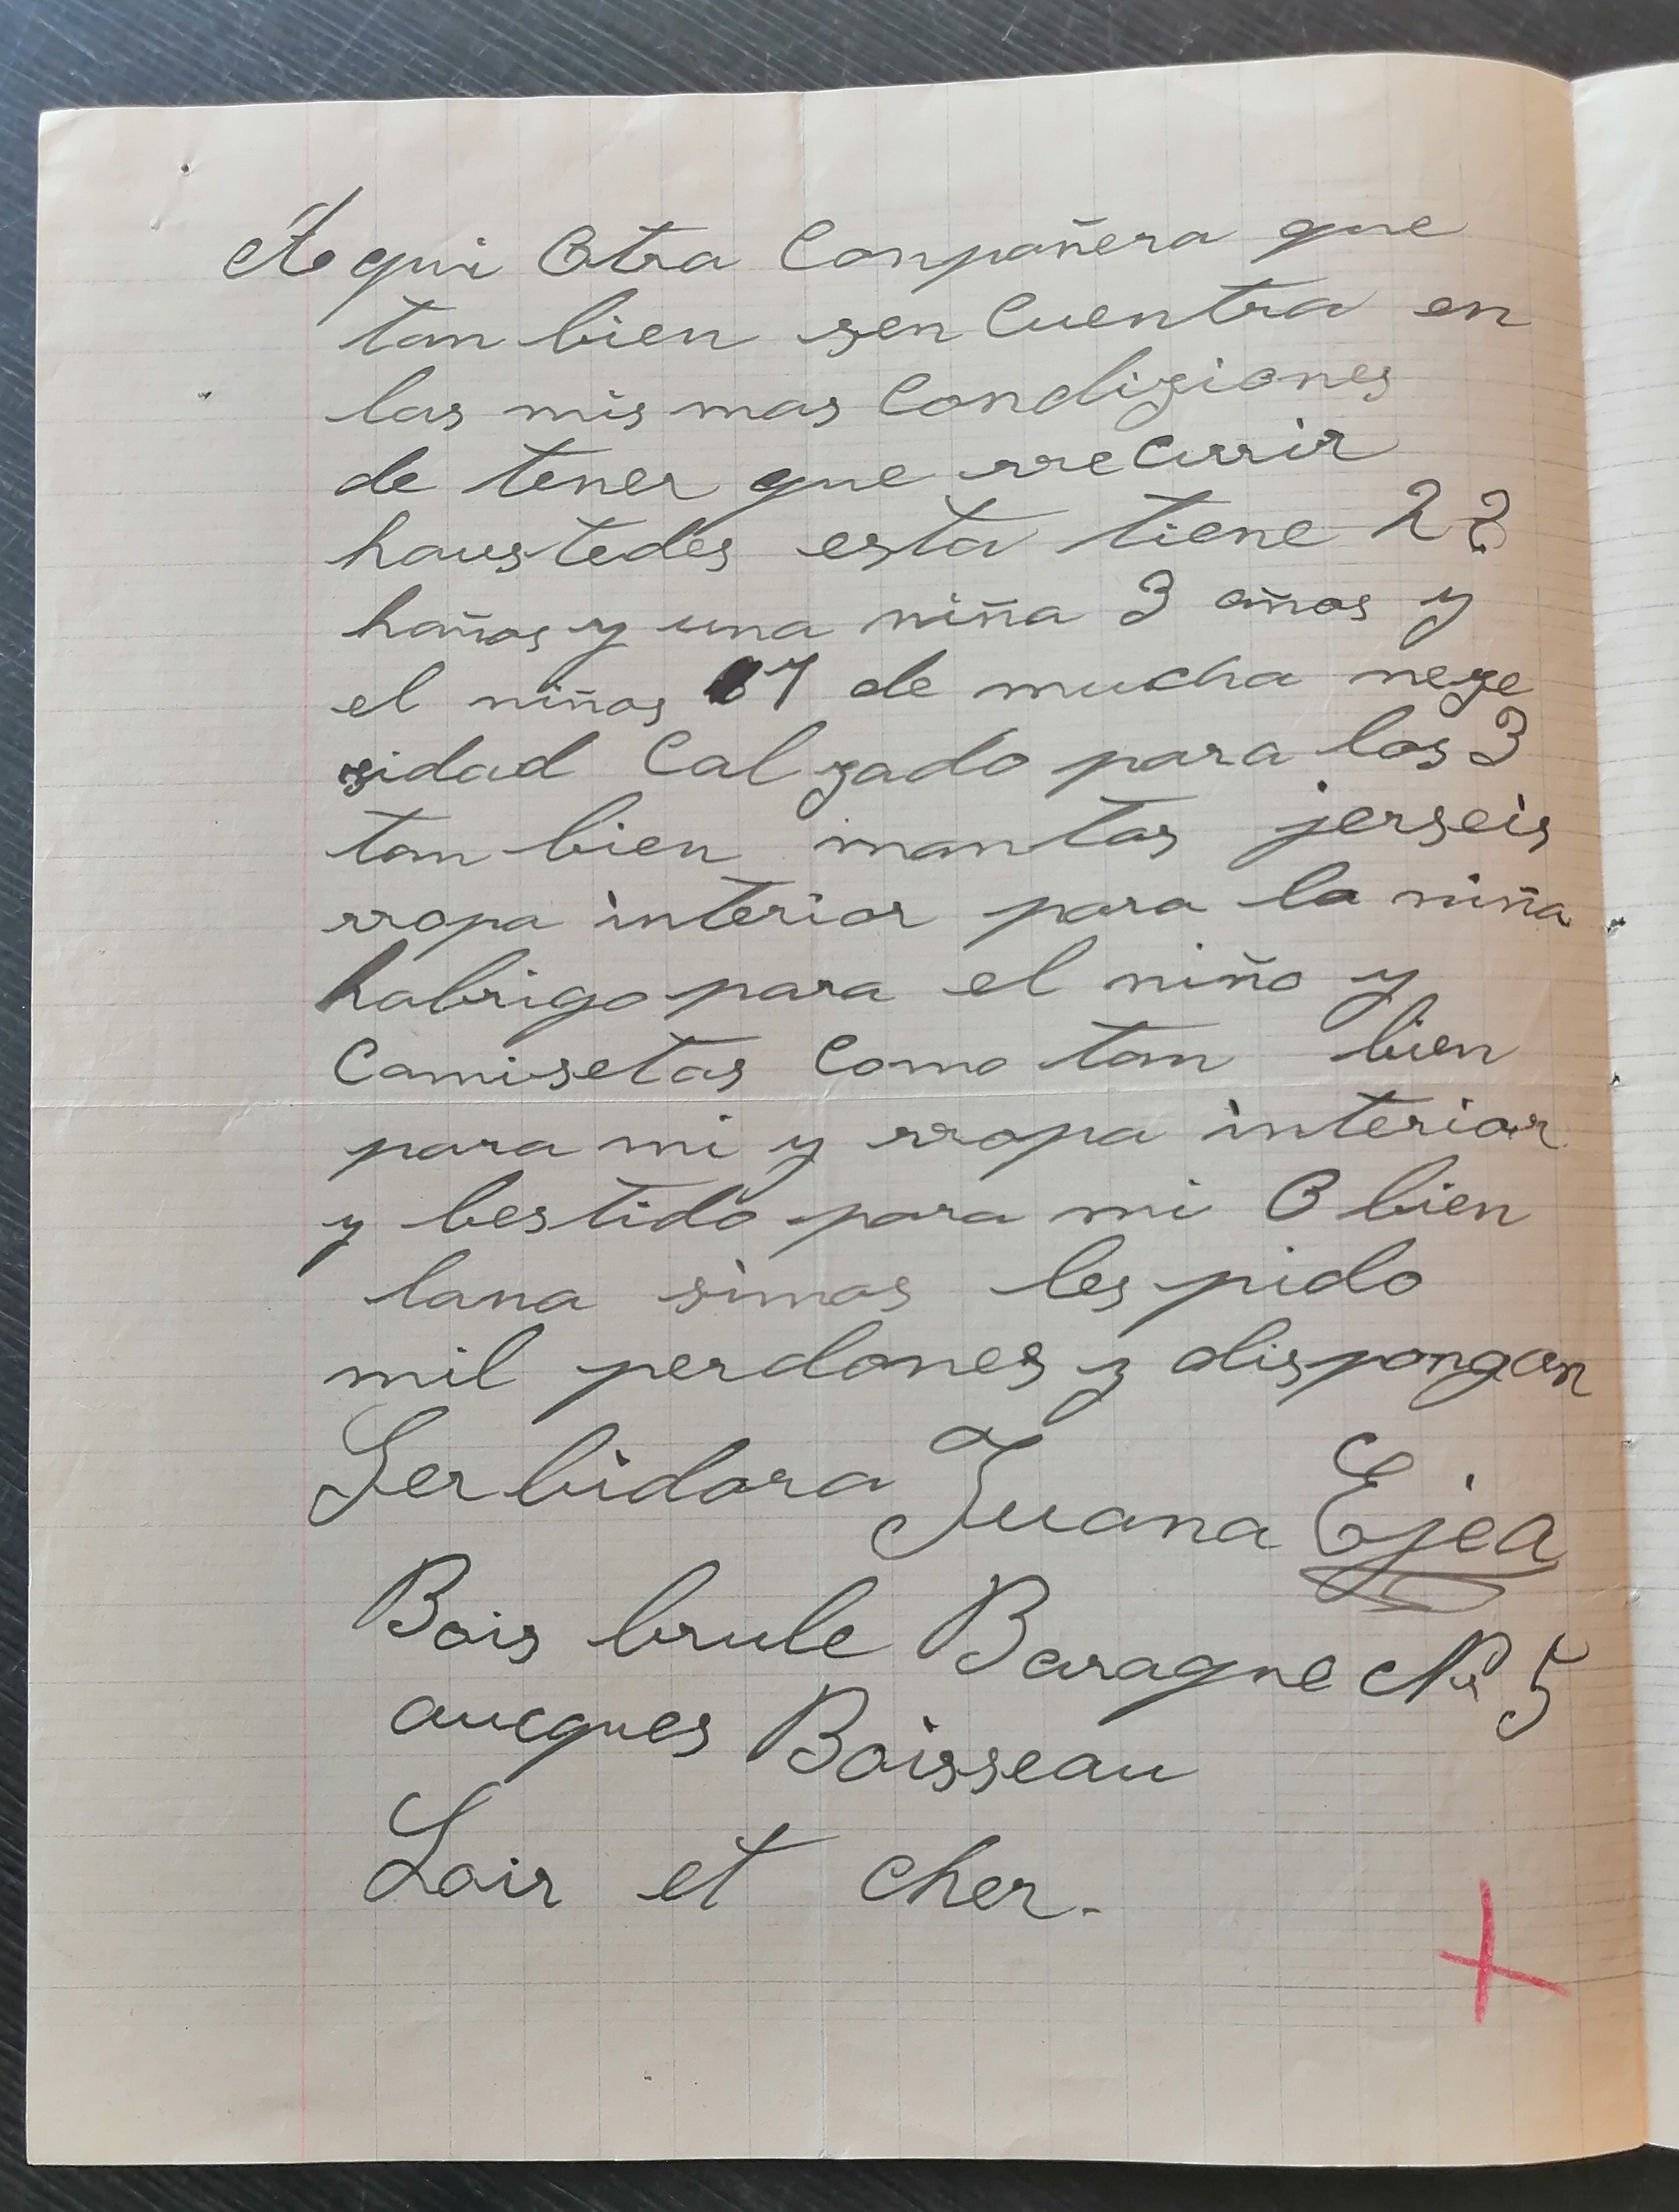 Aqui Otra Conpañera que
tan bien sen Cuentra en
las mis mas Condiziones
de tener que rrecurrir
haustedes esta tiene 22
hañas y una niña 3 años y
el niños 7 de mucha neze
sidad Calzado para los 3
tan bien mantas jerseis
rropa interior para la niña
habrigo para el niño y
Camisetas Como tan bien
para mi y rropa interior
y bestido para mi O bien
lana simas les pido
mil perdones y dispongan
Serbidora Juana Ejea
Bois brule Baragne Nº 5
aucques Boisseau
Loir et Cher.